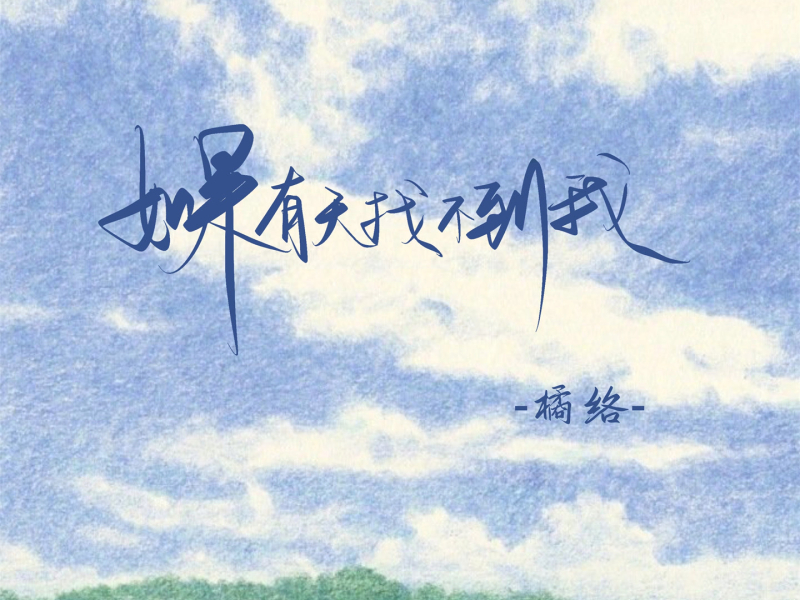 如果有天找不到我
-橘络-